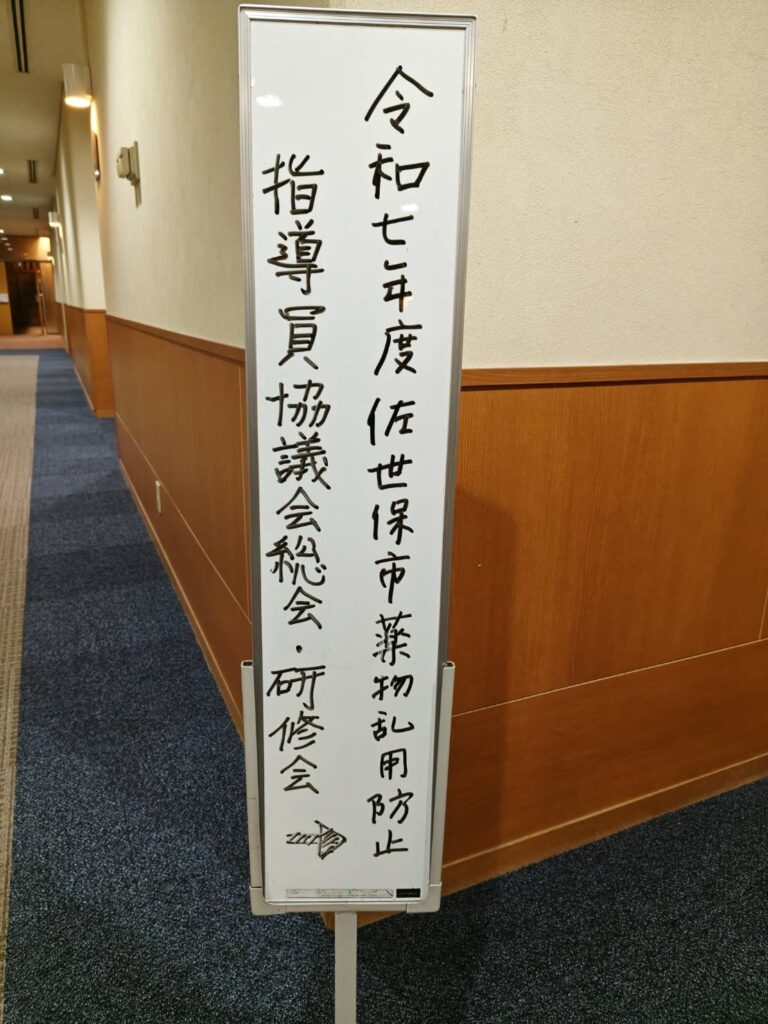 令和七年度佐世保市薬物乱用防止
指導員協議会総会・研修会